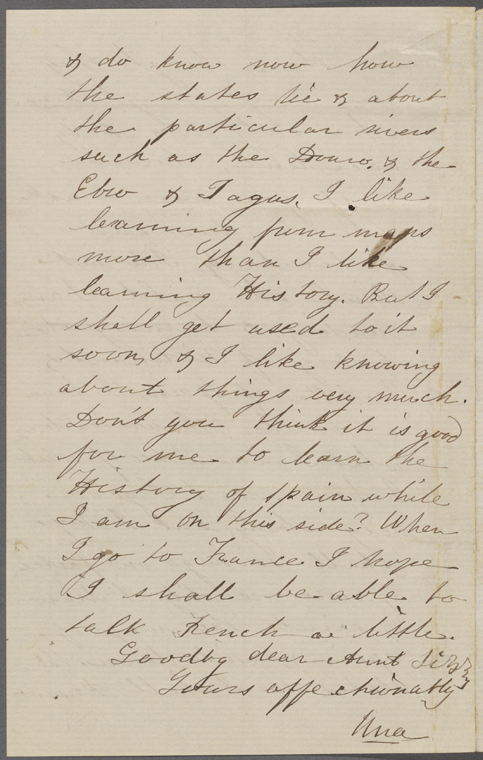 & do know now how
the states lie & about
the particular rivers
such as the Douro, & the
Ebro & Tagus. I like
learning from maps
more than I like
learning History. But I
shall get used to it
soon, & I like knowing
about things very much.
Don't you think it is good
for me to learn the
History of Spain while
I am on this side? When
I go to France I hope
I shall be able to
talk French a little.
Goodby dear Aunt Lizzy
Yours affectionately
Una